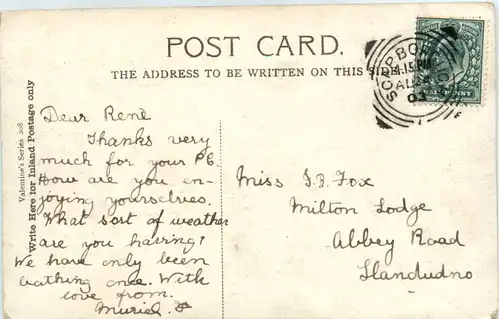 POST CARD.
THE ADDRESS TO BE WRITTEN ON THIS SIDE.
Valentine's Series
Write Here for Inland Postage only
Dear Renè
Thanks very
much for your P.C.
How are you en-
joying yourselves.
What sort of weather
are you having?
We have only been
bathing once. With
love from.
Muriel.
Miss I.R. Fox
Milton Lodge
Abbey Road
Llandudno
4.15 PM
03